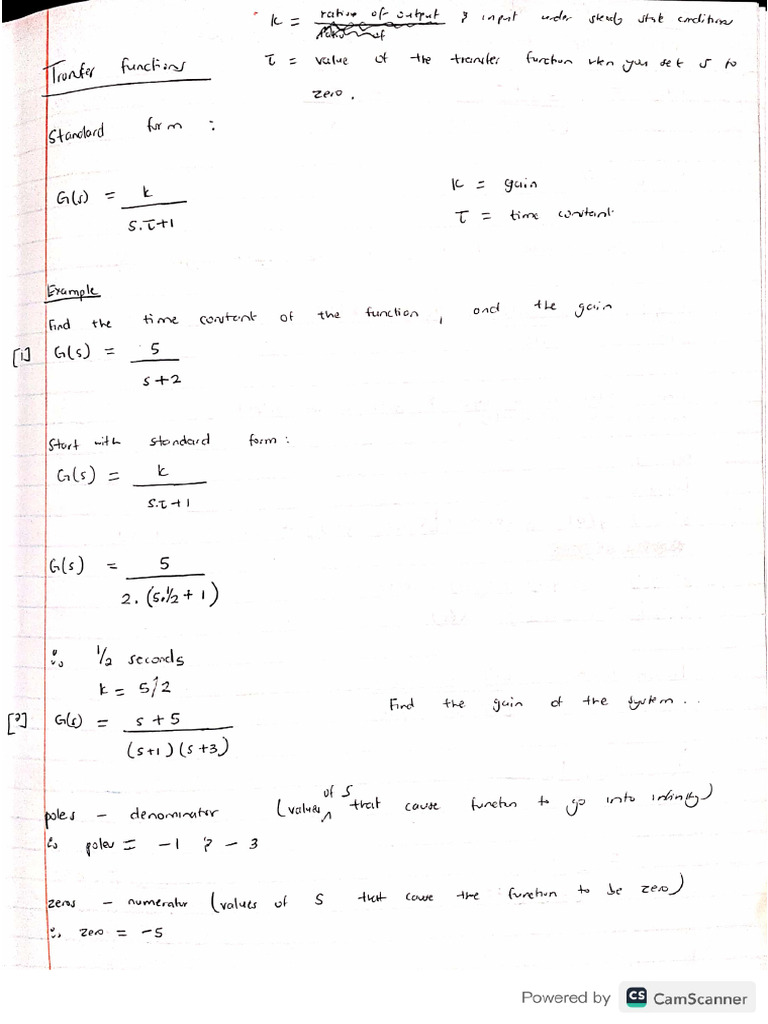 k = ration of output & input under steady state conditions
Transfer functions
τ = value of the transfer function when you set s to
zero.
Standard form :
G(s) = k / s.τ+1
k = gain
τ = time constant
Example
Find the time constant of the function, and the gain
[1] G(s) = 5 / s+2
Start with standard form :
G(s) = k / s.τ+1
G(s) = 5 / 2.(s.1/2 + 1)
∴ 1/2 seconds
k = 5/2
Find the gain of the system...
[2] G(s) = s+5 / (s+1)(s+3)
poles - denominator (values of S that cause function to go into infinity)
∴ poles = -1 & -3
zeros - numerator (values of S that cause the function to be zero)
∴ zero = -5
Powered by CS CamScanner